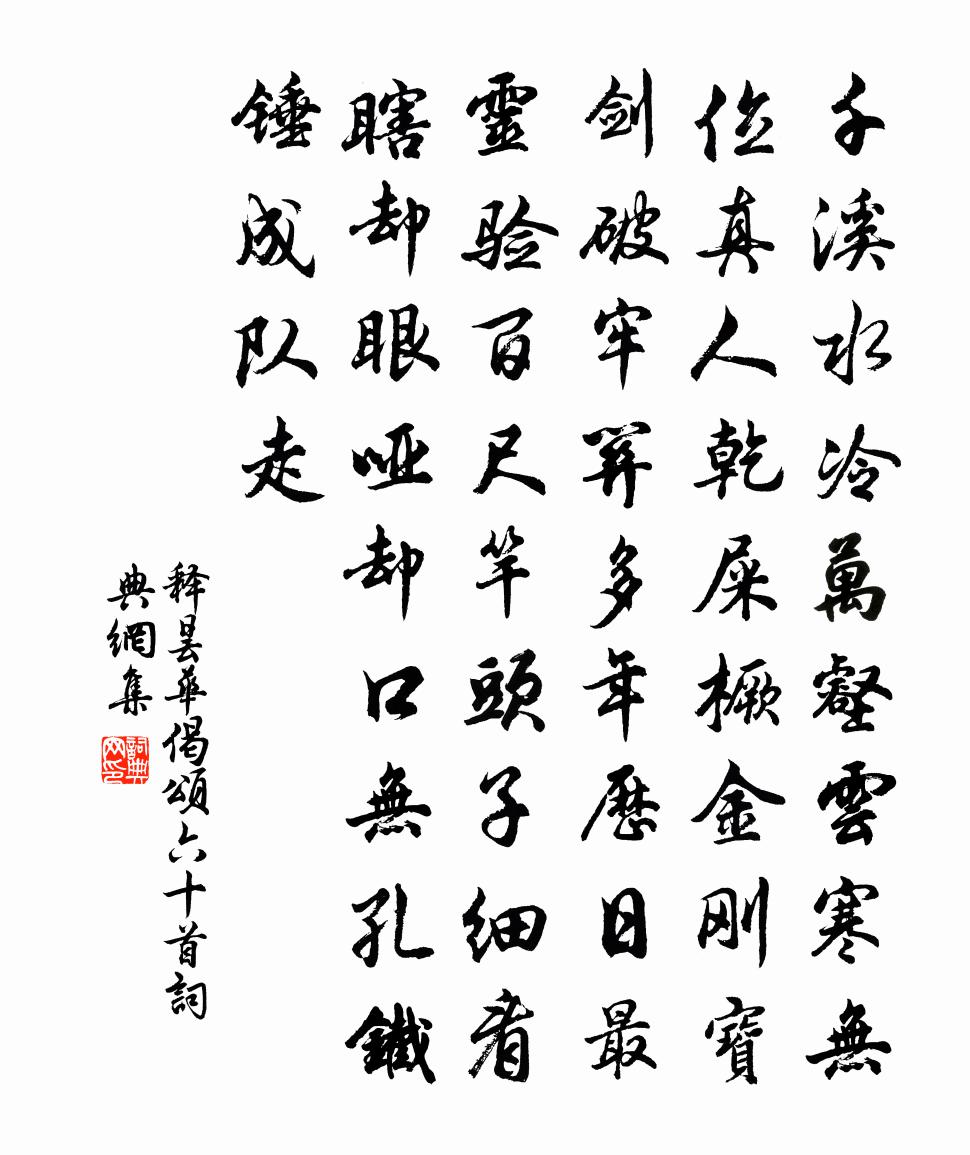 千溪水冷萬壑雲寒無
位真人乾屎橛金刚寶
剑破牢關多年歷日最
靈验百尺竿頭子细看
瞎却眼哑却口無孔鐵
锤成队走
释曇華偈頌六十首詞
典網集
詞典网印